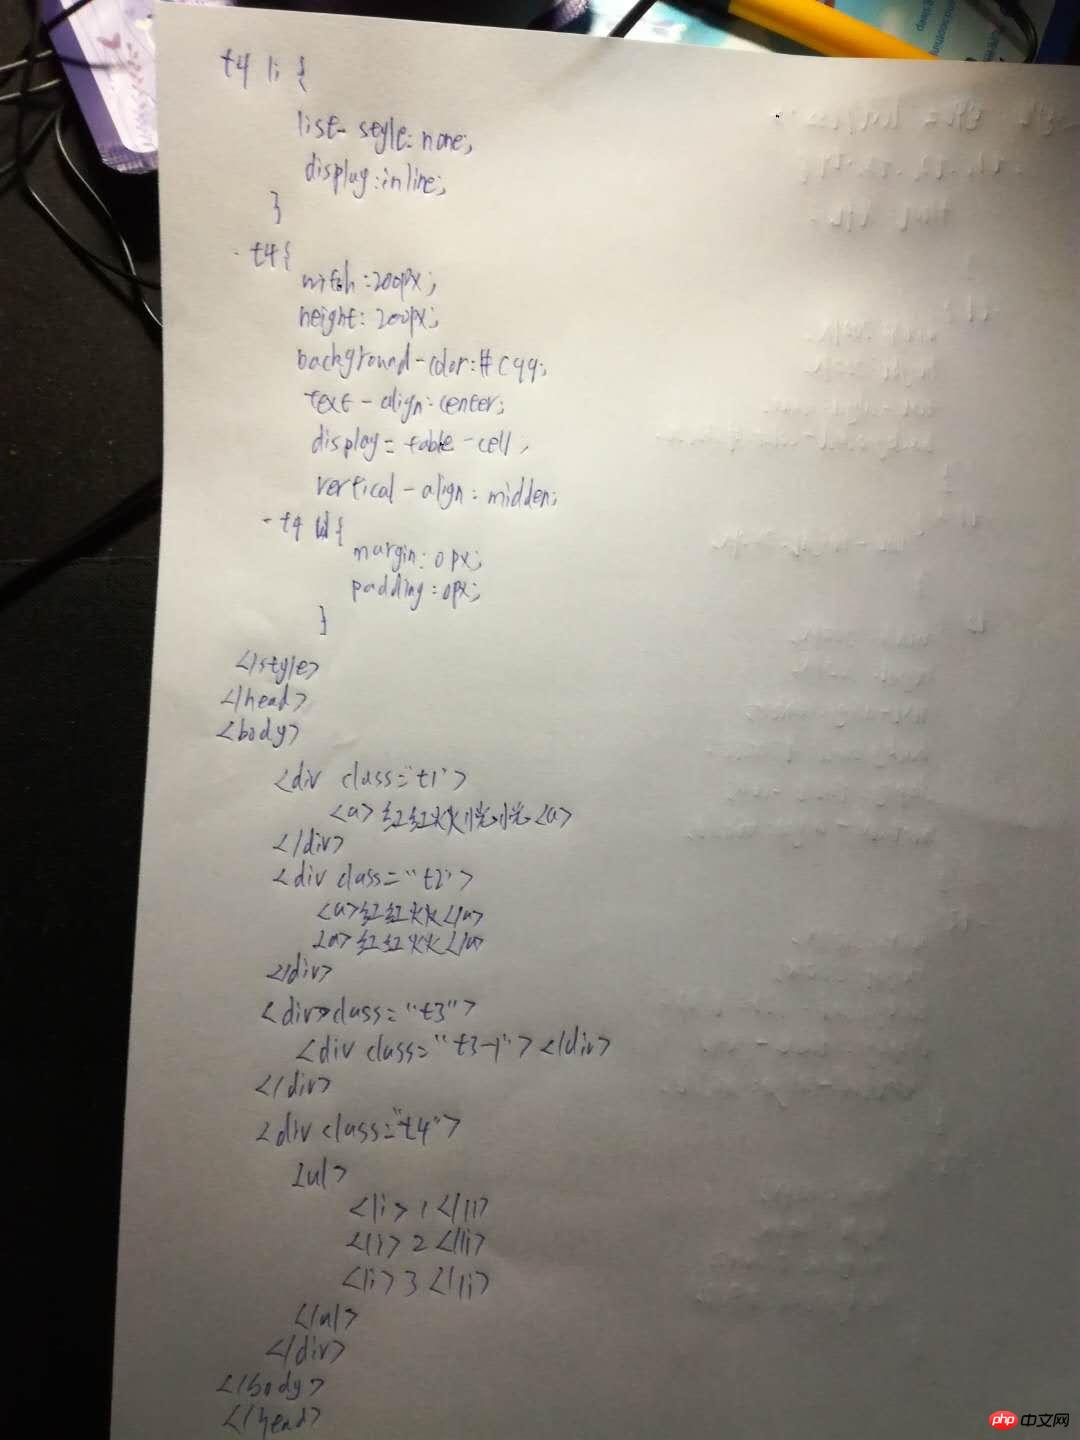 t4 li {
list-style: none;
display: inline;
}
.t4{
witch: 200px;
height: 200px;
background-color: #c99;
text-align: center;
display= table-cell,
vertical-align: midden;
.t4 ul {
margin: 0px;
padding: 0px;
}
</style>
</head>
<body>
<div class="t1">
<a>红红火火恍恍<a>
</div>
<div class="t2">
<a>红红火火</a>
<a>红红火火</a>
</div>
<div>class="t3">
<div class="t3-1"></div>
</div>
<div class="t4">
<ul>
<li>1</li>
<li>2</li>
<li>3</li>
</ul>
</div>
</body>
</head>
php 中文网